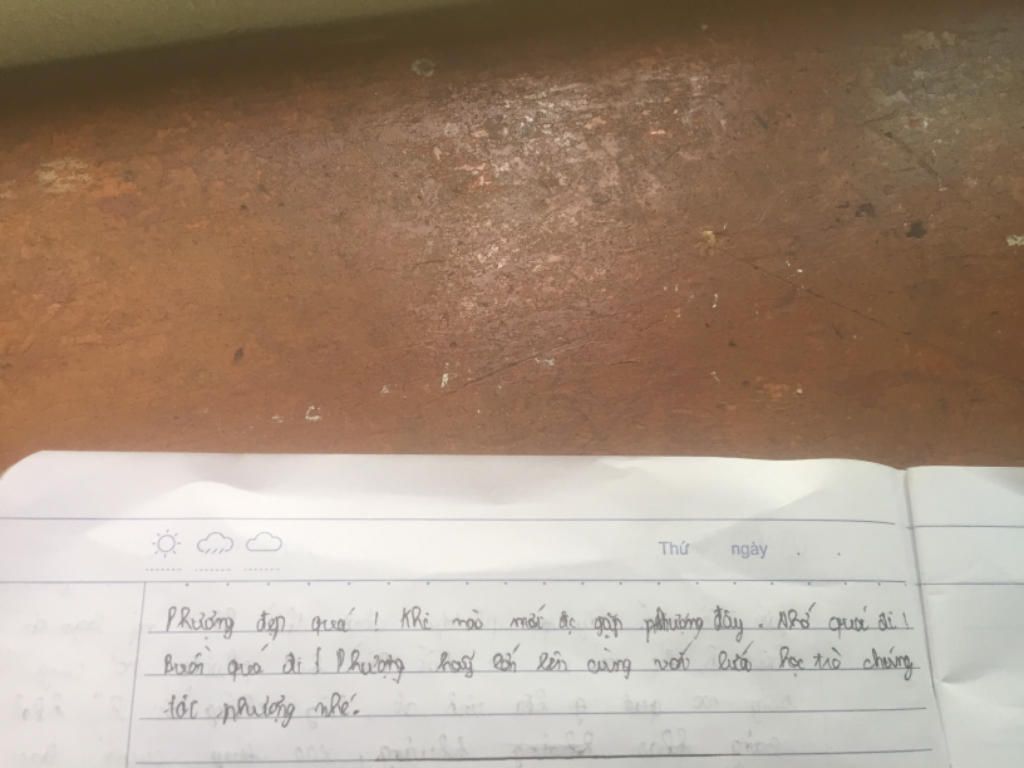 Thứ ngày . .
Phượng đẹp quá ! Khi nào mới đc gặp phượng đây . Nhớ quá đi !
Buồn quá đi ! Phượng hãy lớn lên cùng với lứa học trò chúng
tớ phượng nhé.